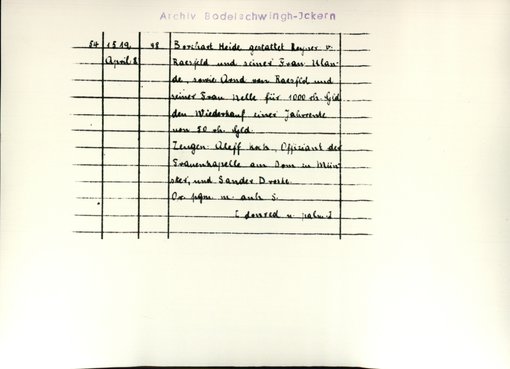 Archiv Bodelschwingh-Ickern
84 1519, 48 Borchart Heide gestattet Reyner v.
April 8 Raesfeld und seiner Frau Than-
de, sowie Arnd van Raesfeld und
seiner Frau Nelle für 1000 rh. Gld
den Wiederkauf einer Jahrrente
von 50 rh. Gld.
Zeugen: Aleff Kock, Offiziant der
Frauenkapelle am Dom in Mün-
ster, und Sander Droste.
Or. pgm. m. anh. S.